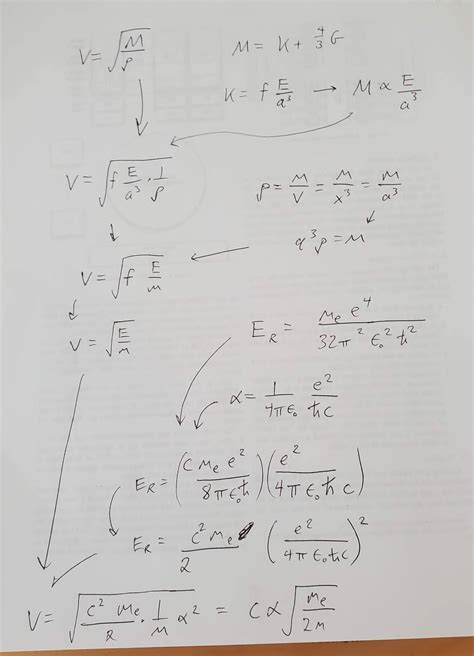 V = √(M/ρ)    M = K + 4/3 G
K = f E/a³ → M ∝ E/a³
V = √(f E/a³ · 1/ρ)    ρ = m/V = m/x³ = m/a³
a³ρ = m
V = √(f E/m)
V = √(E/m)    E_R = m_e e⁴ / 32π² ε₀² ħ²
α = 1/4πε₀ e²/ħc
E_R = (c m_e e²/8πε₀ħ)(e²/4πε₀ħc)
E_R = c² m_e/2 (e²/4πε₀ħc)²
V = √(c² m_e/2 · 1/m α²) = cα√(m_e/2m)